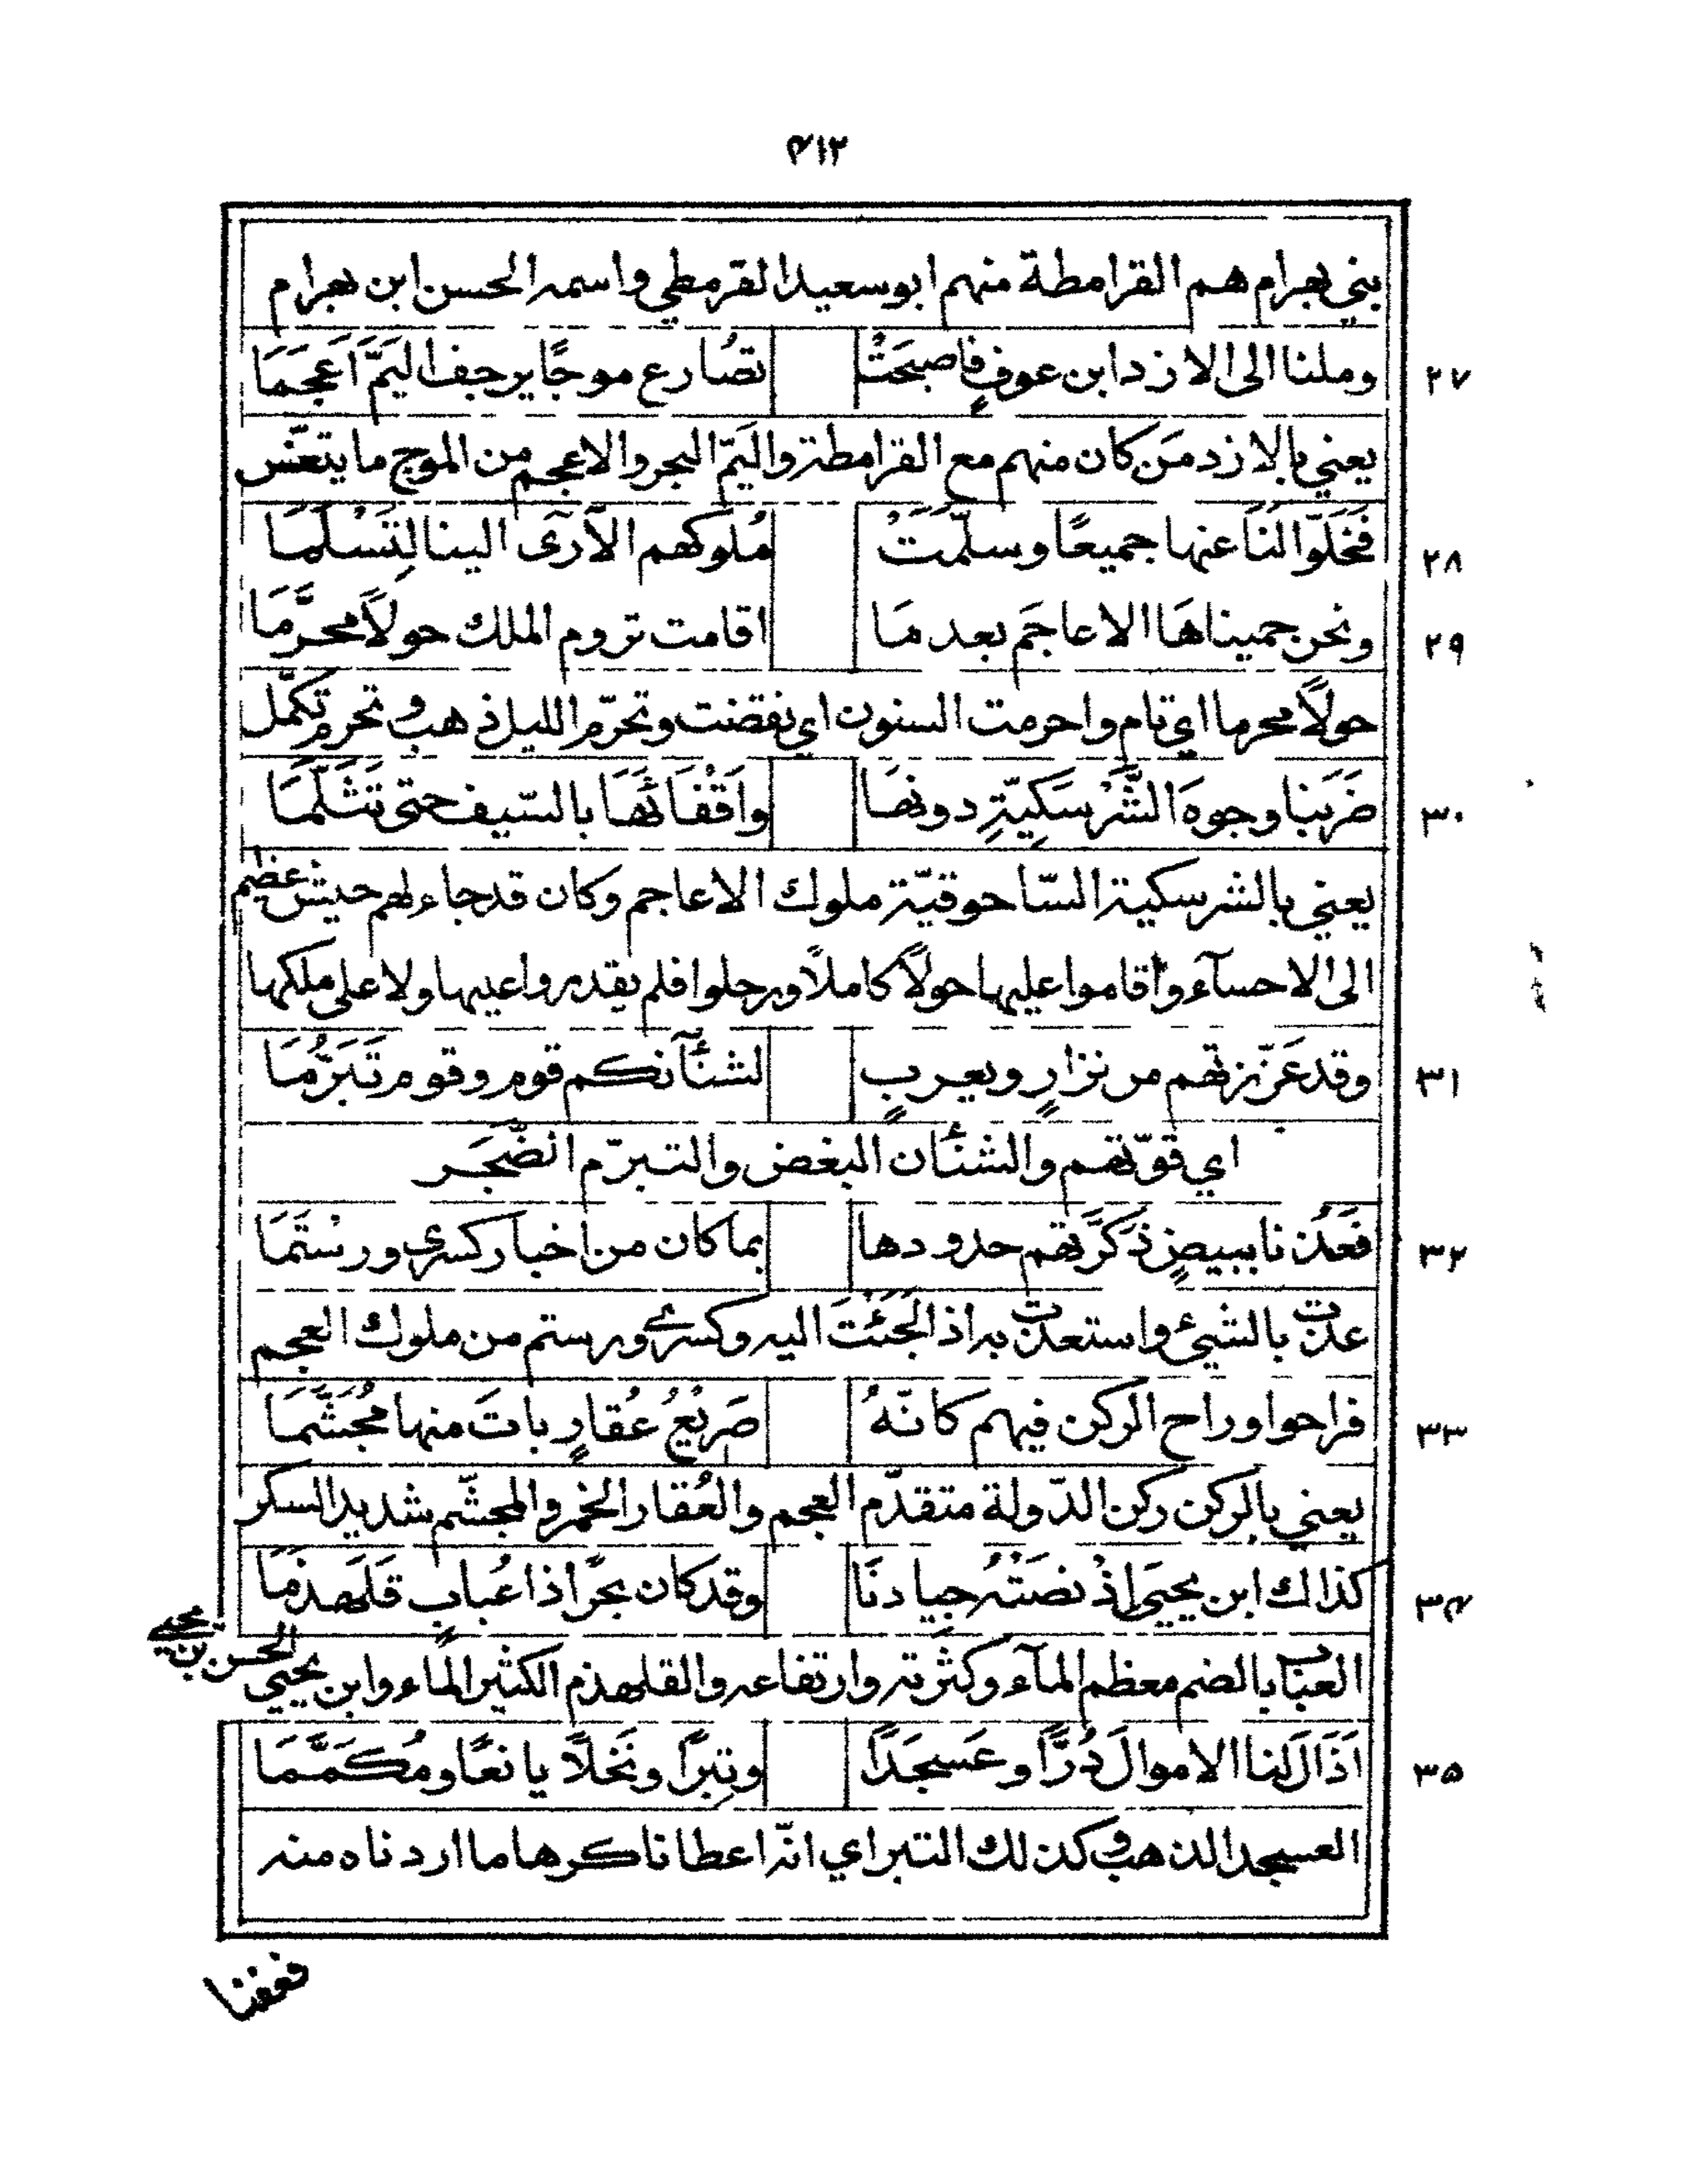 ٤١٢
بني بهرام هم القرامطة منهم ابو سعيد القرمطي واسمه الحسن ابن بهرام
٢٧ وملنا الى الازد ابن عوفٍ فاصبحَتْ تصُارع موجًا يرجف اليَمَّ اَعجَمَا
يعني بالازد مَن كان منهم مع القرامطة واليَمّ البحر والاعجم من الموج ما يتعّس
٢٨ فَخَلّوا لنَا عنها جميعًا وسلّمَتْ مُلوكهم الآرَى الينا لِتَسْلَمَا
٢٩ ونحن حميناهَا الاعاجَم بعد مَا اقامت تروم الملك حولاً محرَّمَا
حولاً محرما اي تام واحرمت السنون اي نقضت وتحرّم الليل ذهب وتحرم تكمّل
٣٠ ضَرَبنا وجوهَ الشَّرْسَكِيّةِ دونهَا واَقْفَائهَا بالسّيف حتى تَثَلّمَا
يعني بالشرسكية السّاحوقيّة ملوك الاعاجم وكان قد جاء لهم جيش عظيم
الى الاحسآء واقاموا عليها حولاً كاملاً ورحلوا فلم يقدروا عليها ولا على ملكها
٣١ وقد عَزّزتهم من نزارٍ ويعربٍ لشنآنكم قوم وقوم تَبَرُّمَا
اي قوّتهم والشنئان البغض والتبرّم الضّجَر
٣٢ فَعُذنا ببيضٍ ذَكَّرَتهم حدودها بما كان من اخبار كسرى ورستَمَا
عذت بالشيئ واستعذت به اذا لجَئْتَ اليه وكسرے ورستم من ملوك العجم
٣٣ فراحوا وراح الركن فيهم كانّهُ صَرِيْعُ عُقارٍ باتَ منها مُجَشَّمَا
يعني بالركن ركن الدّولة متقدّم العجم والعُقار الخمر والمجشّم شديد السكر
٣٤ كذاك ابن يحيَى اِذْ نضَتْهُ جيادنَا وقد كان بحرًا ذا عُبابٍ قَلَهذمَا
العباب بالضم معظم المآء وكثرته وارتفاعه والقلهذم الكثير الماء وابن يحيى الحسن بن يحيى
٣٥ اَذَالَ لنا الاموالَ دُرًّا وعَسجَدًا وتِبرًا ونَخلاً يانعًا ومُكَمَّمَا
العسجد الذهب وكذلك التبر اي انّه اعطانا كرها ما اردناه منه
فعفنا